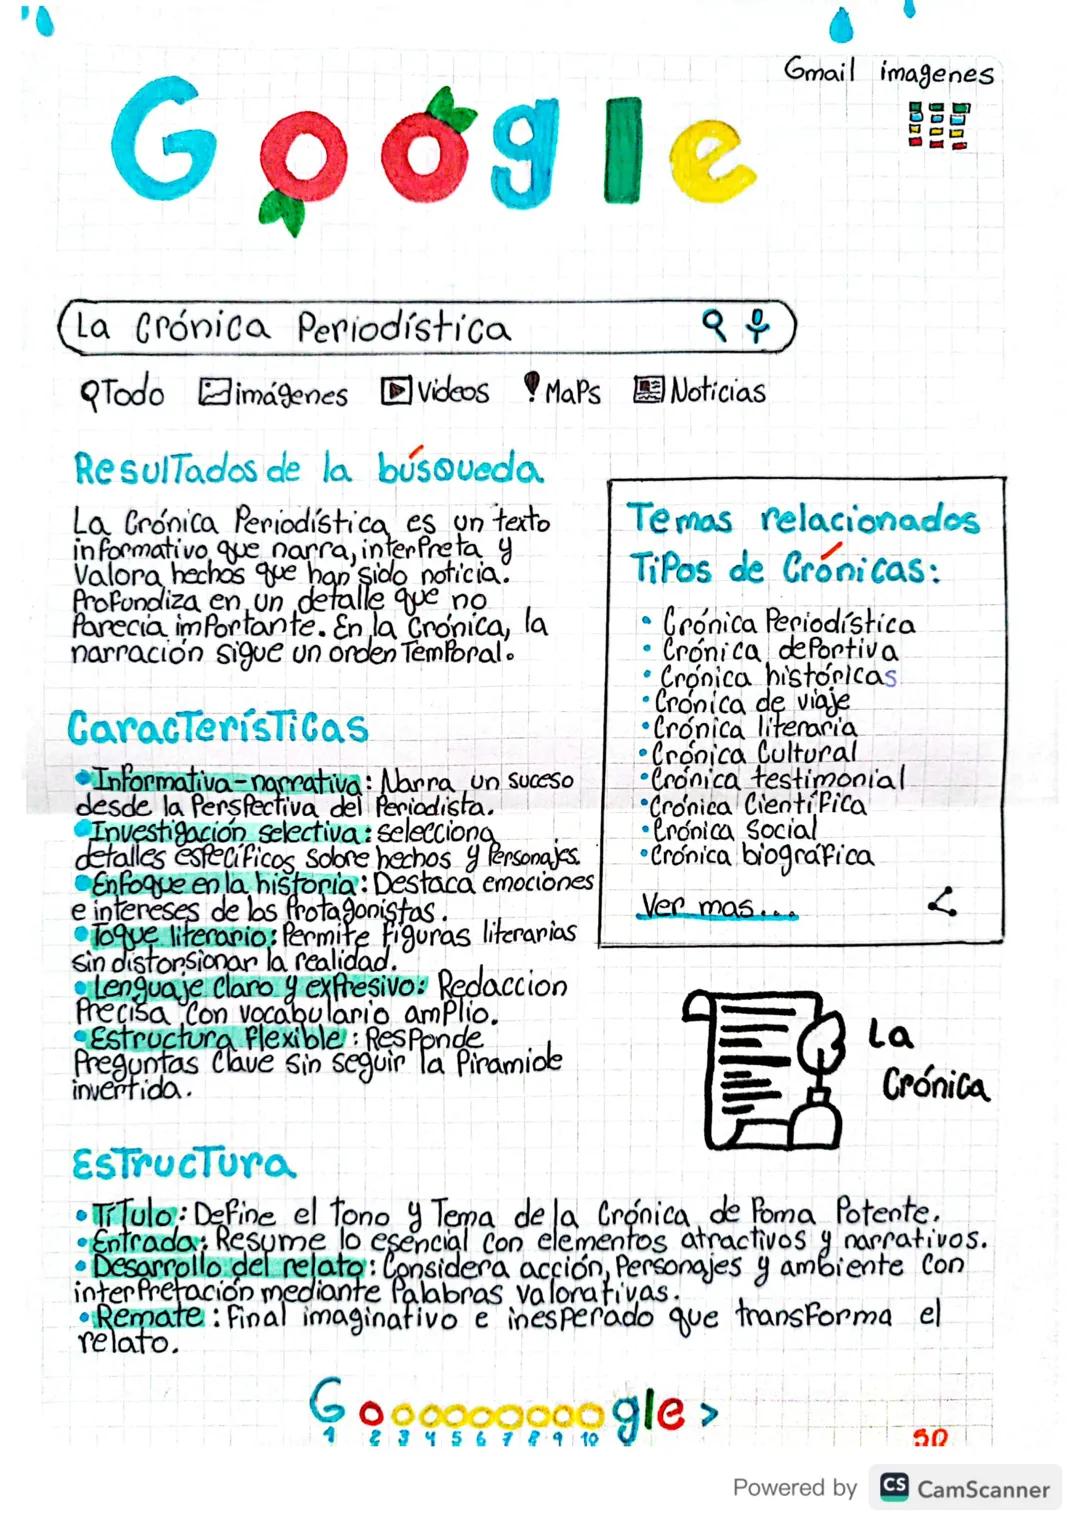 Gmail imagenes
Google
La Crónica Periodística
Todo imágenes Videos Maps Noticias
Resultados de la búsqueda
La Crónica Periodística es un texto
informativo que narra, interpreta y
Valora hechos que han sido noticia.
Profundiza en un detalle que no
Parecía importante. En la Crónica, la
narración sigue un orden Temporal.
Características
• Informativa-narrativa: Narra un suceso
desde la Perspectiva del Periodista.
• Investigación selectiva: selecciona
detalles específicos sobre hechos y Personajes.
• Enfoque en la historia: Destaca emociones
e intereses de los Protagonistas.
• Toque literario: Permite figuras literarias
sin distorsionar la realidad.
• Lenguaje Claro y expresivo: Redaccion
Precisa Con vocabulario amplio.
• Estructura flexible: Responde
Preguntas Clave sin seguir la Piramide
invertida.
Temas relacionados
Tipos de Crónicas:
• Crónica Periodística
• Crónica deportiva
• Crónica históricas
• Crónica de viaje
• Crónica literaria
• Crónica Cultural
• Crónica testimonial
• Crónica Científica
• Crónica Social
• Crónica biográfica
Ver mas...
La
Crónica
Estructura
• Título: Define el tono y Tema de la Crónica de Poma Potente.
• Entrada: Resume lo esencial con elementos atractivos y narrativos.
• Desarrollo del relato: Considera acción, Personajes y ambiente Con
interpretación mediante Palabras valorativas.
• Remate: Final imaginativo e inesperado que transforma el
relato.
Gooooooooogle >
1 2 3 4 5 6 7 8 9 10
Powered by CS CamScanner